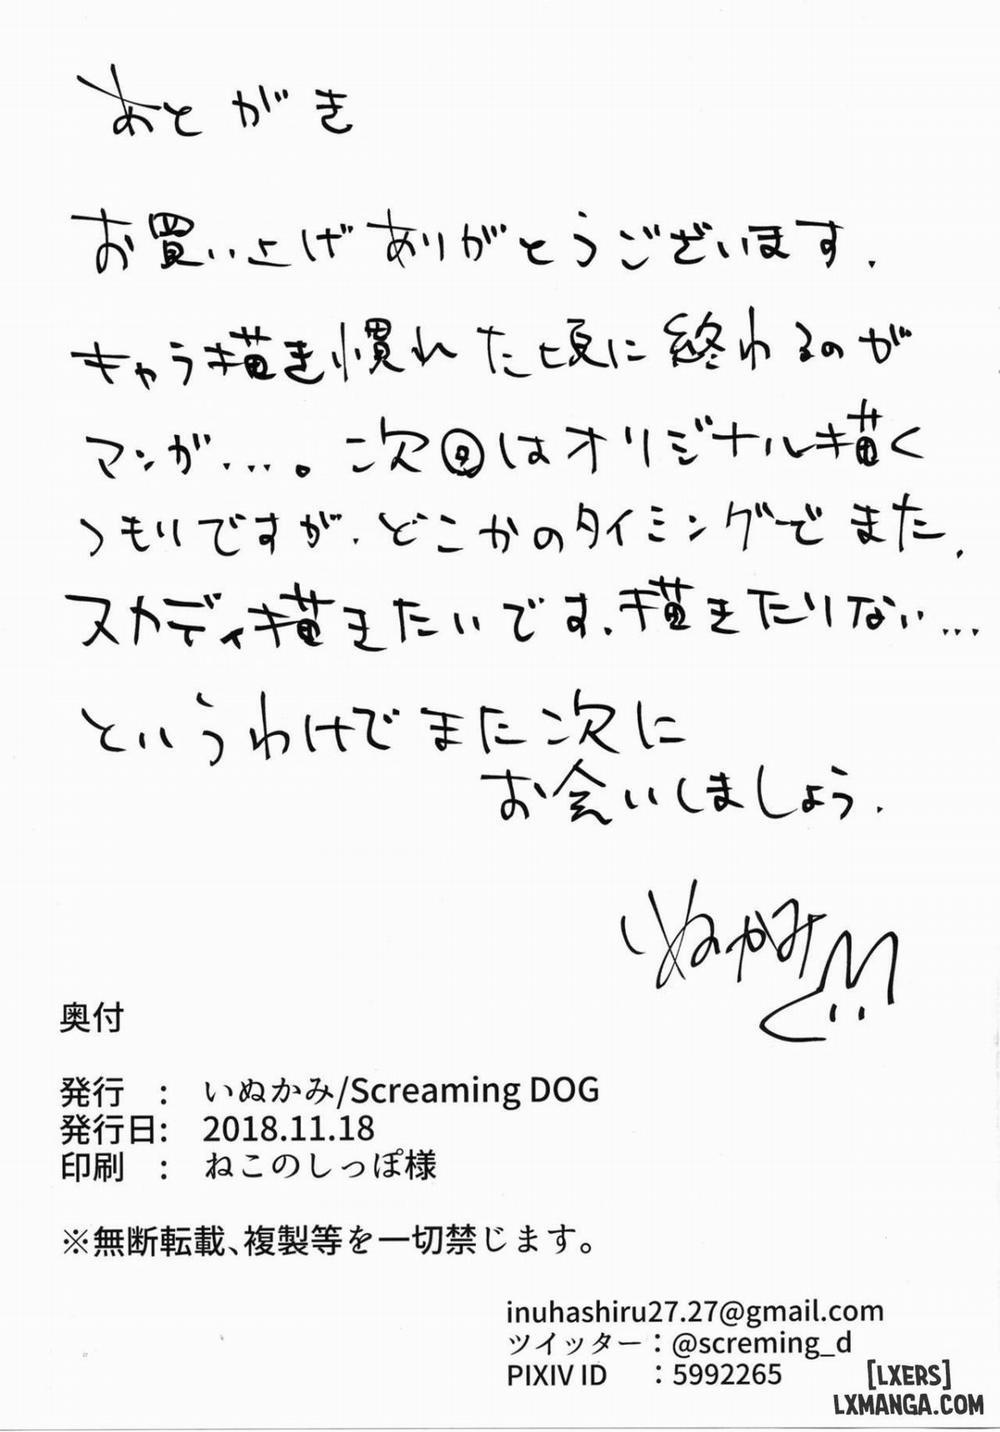 あとがき
お買い上げありがとうございます.
キャラ描き慣れた頃に終わるのが
マンガ...。次回はオリジナル描く
つもりですが.どこかのタイミングでまた.
スカディ描きたいです.描きたりない...
というわけでまた次に
お会いしましょう.
いぬかみ
奥付
発行 : いぬかみ/Screaming DOG
発行日: 2018.11.18
印刷 : ねこのしっぽ様
※無断転載、複製等を一切禁じます。
inuhashiru27.27@gmail.com
ツイッター:@screming_d
PIXIV ID :5992265
[LXERS]
LXMANGA.COM